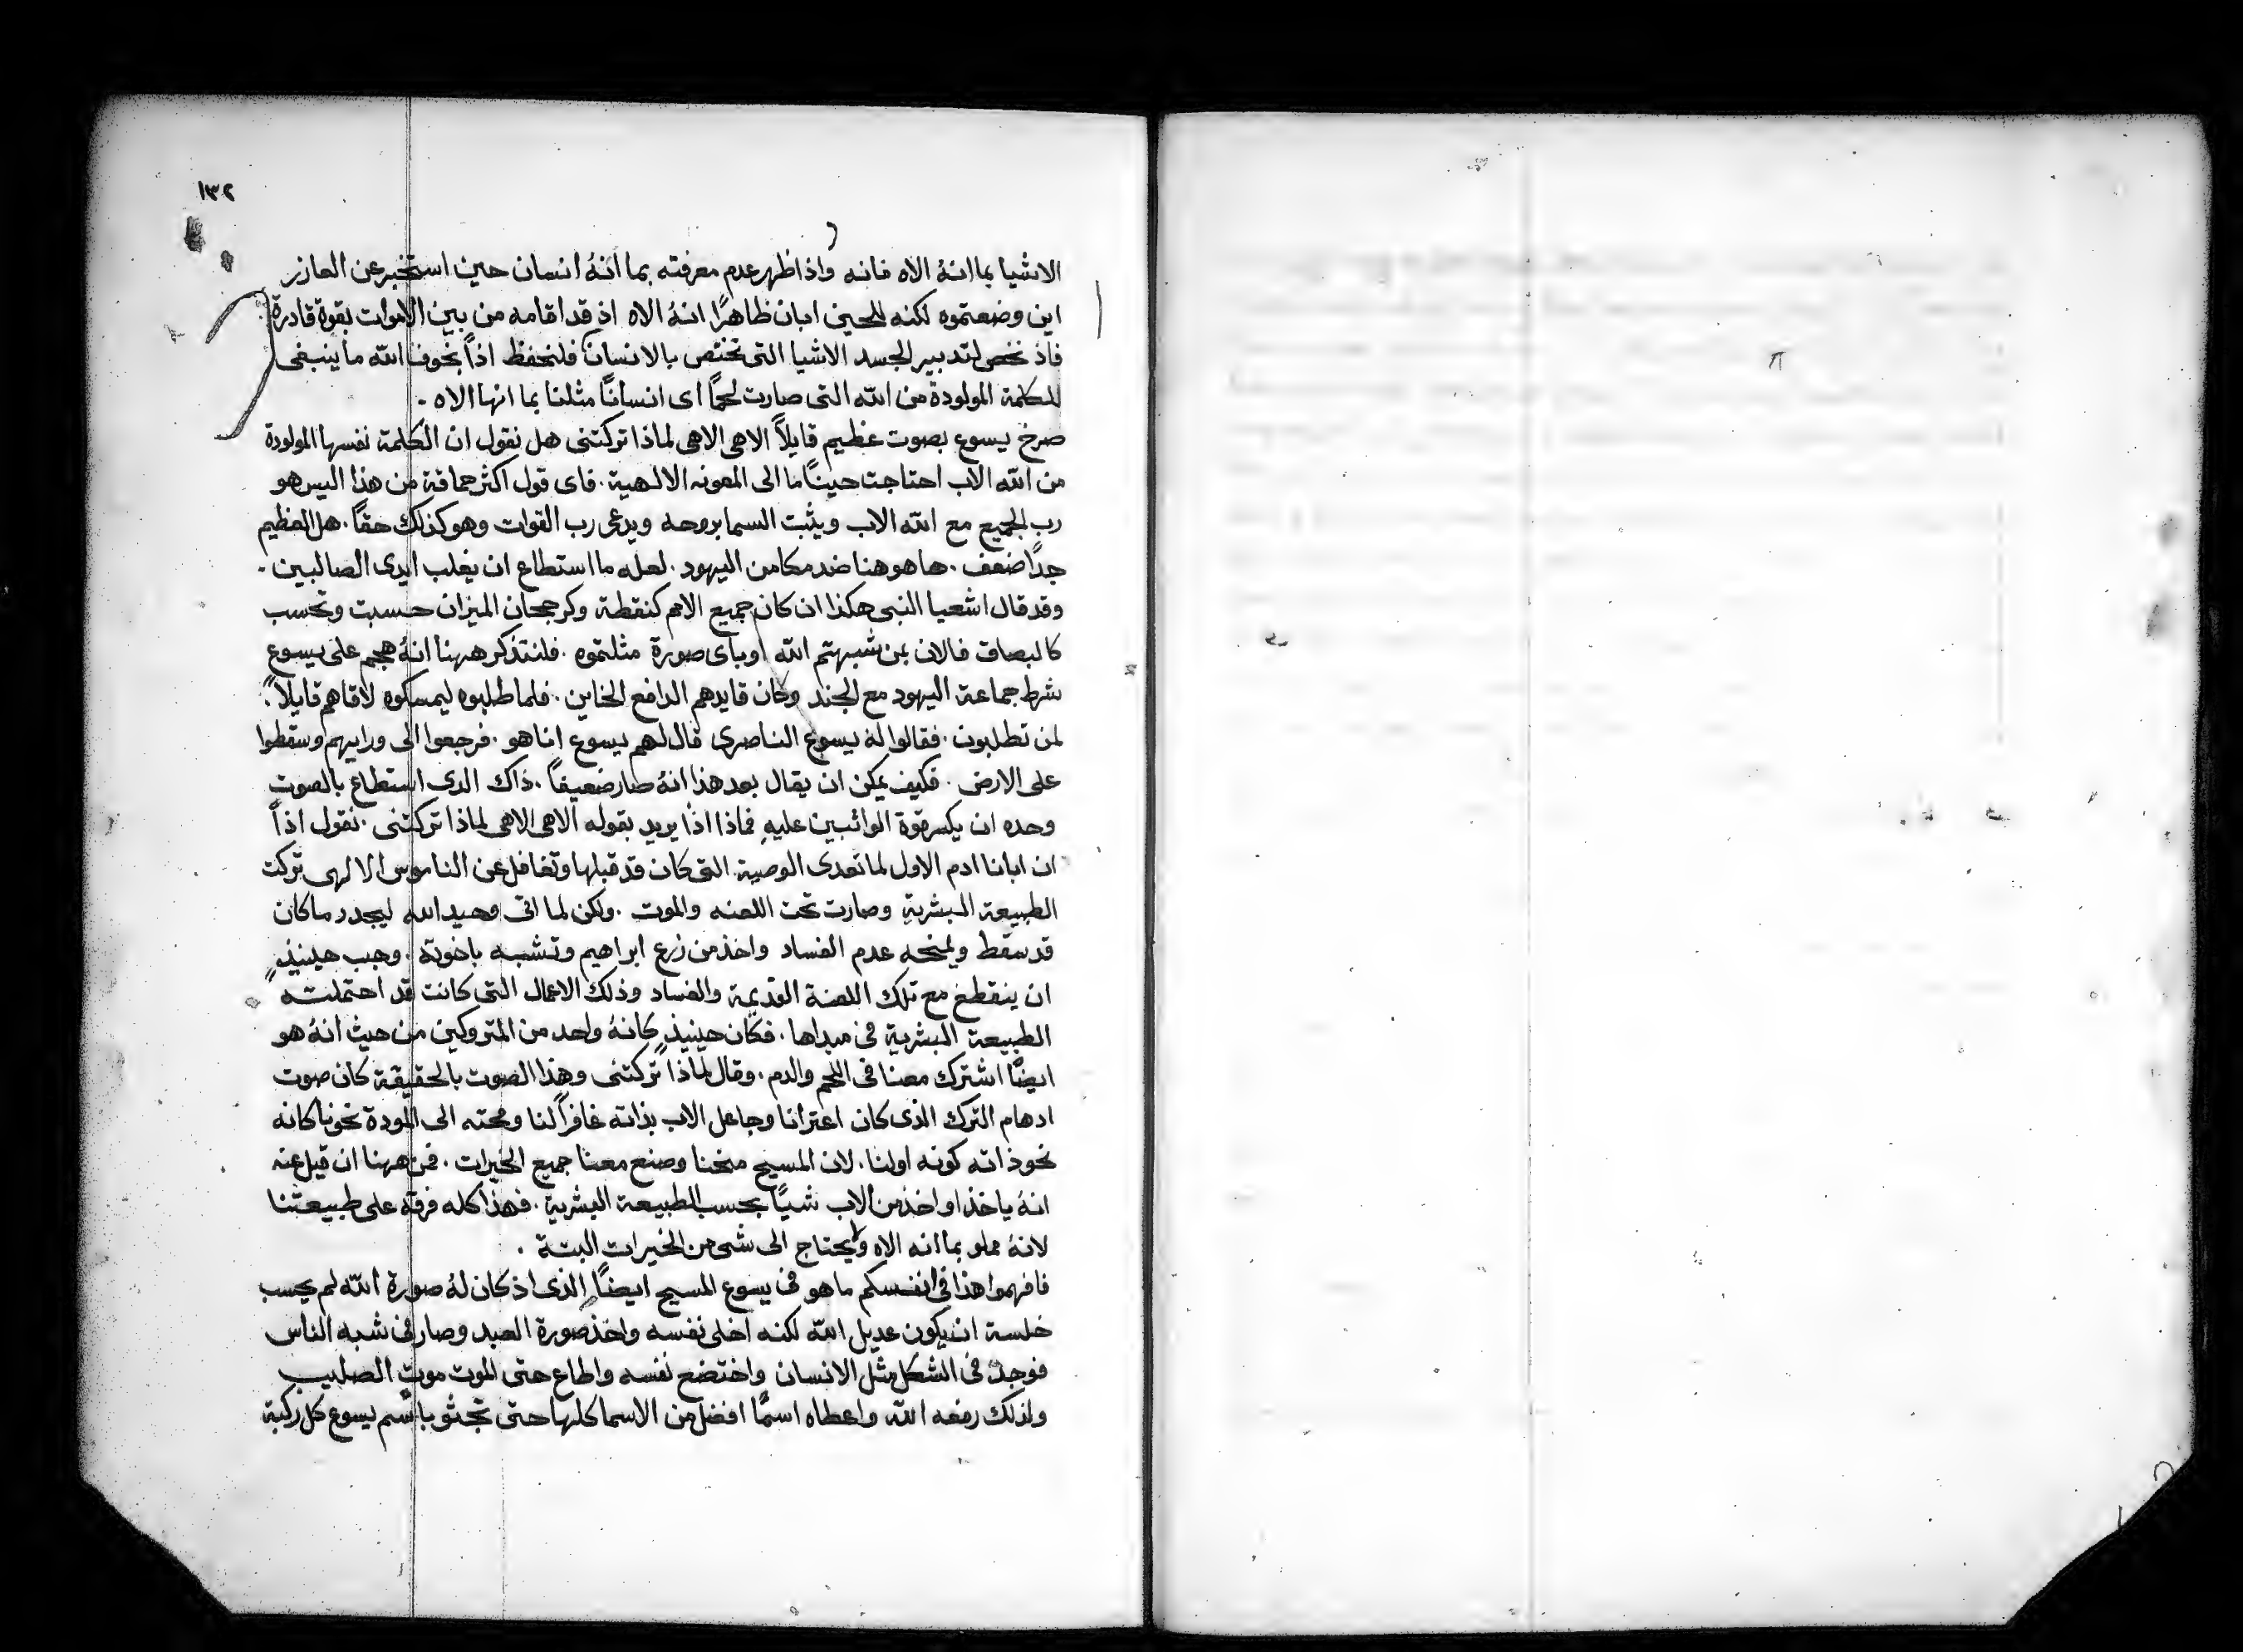 ١٣٢
الاشيا بما انهُ الاه فانه واذ اظهر عدم معرفته بما انهُ انسان حين استخبر عن العازر
اين وضعتموه لكنه للحين ابان ظاهرًا انهُ الاه اذ قد اقامه من بين الاموات بقوة قادرة
فاذ نخص لتدبير الجسد الاشيا التى تختص بالانسان فلنحفظ اذاً بخوف الله ما ينبغى
للكلمة المولودة من الله التى صارت لحمًا اى انسانًا مثلنا بما انها الاه .
صرخ يسوع بصوت عظيم قايلاً الاهى الاهى لماذا تركتنى هل نقول ان الكلمة نفسها المولودة
من الله الاب احتاجت حينًا ما الى المعونه الالهية . فاى قول اكثر حماقة من هذا اليس هو
رب الجميع مع الله الاب ويثبت السما بروحه ويدعى رب القوات وهو كذلك حقاً . هل العظيم
جدًا ضعف . ها هو هنا ضد مكامن اليهود . لعله ما استطاع ان يغلب ايدى الصالبين .
وقد قال اشعيا النبى هكذا ان كان جميع الامم كنقطة وكرجحان الميزان حسبت وتحسب
كالبصاق فالان بمن شبهتم الله او باى صورة مثلتموه . فلنتذكر ههنا انهُ هجم على يسوع
شرط جماعة اليهود مع الجند وكان قايدهم الدافع الخاين . فلما طلبوه ليمسكوه لاقاهم قايلاً :
لمن تطلبون . فقالوا لهُ يسوع الناصرى قال لهم يسوع انا هو . فرجعوا الى ورايهم وسقطوا
على الارض . فكيف يمكن ان يقال بعد هذا انهُ صار ضعيفاً . ذاك الذى استطاع بالصوت
وحده ان يكسر قوة الواثبين عليهِ فماذا اذًا يريد بقوله الاهى الاهى لماذا تركتنى . نقول اذاً
ان ابانا ادم الاول لما تعدى الوصية التى كان قد قبلها وتغافل عن الناموس الالهى تركت
الطبيعة البشرية وصارت تحت اللعنه والموت . ولكن لما اتى وحيد الله ليجدد ما كان
قد سقط ويمنحه عدم الفساد واخذ من زرع ابراهيم وتشبه باخوته . وجب حينيذٍ
ان ينقطع مع تلك اللعنة القديمة والفساد وذلك الاهمال التى كانت قد احتملته
الطبيعة البشرية فى مبداها . فكان حينيذٍ كانهُ واحد من المتروكين من حيث انهُ هو
ايضًا اشترك معنا فى اللحم والدم . وقال لماذا تركتنى وهذا الصوت بالحقيقة كان صوت
ادهام الترك الذى كان اعترانا وجاعل الاب بذاته غافراً لنا ومحبته الى المودة نحونا كانه
نحو ذاته كونه اولنا . لان المسيح منحنا وصنع معنا جميع الخيرات . فمن ههنا ان قيل عنه
انهُ ياخذ او اخذ من الاب شيًا بحسب الطبيعة البشرية . فهذا كله فرقه على طبيعتنا
لانهُ مملو بما انه الاه ولا يحتاج الى شى من الخيرات البتة .
فافهموا هذا فى انفسكم ما هو فى يسوع المسيح ايضًا الذى اذ كان لهُ صورة الله لم يحسب
خلسة ان يكون عديل الله لكنه اخلى نفسه واخذ صورة العبد وصار فى شبه الناس
فوجد فى الشكل مثل الانسان واختضع نفسه واطاع حتى الموت موت الصليب
ولذلك رفعه الله واعطاه اسمًا افضل من الاسما كلها حتى تجثو باسم يسوع كل ركبة